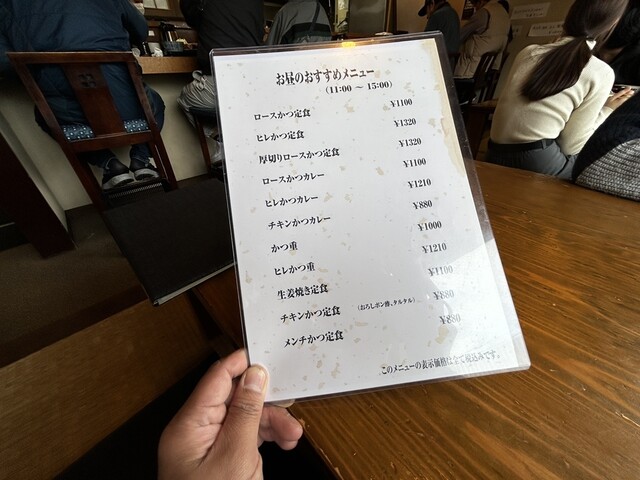 お昼のおすすめメニュー
(11:00 ～ 15:00)
ロースかつ定食 ¥1100
ヒレかつ定食 ¥1320
厚切りロースかつ定食 ¥1320
ロースかつカレー ¥1100
ヒレかつカレー ¥1210
チキンかつカレー ¥880
かつ重 ¥1000
ヒレかつ重 ¥1210
生姜焼き定食 ¥1100
チキンかつ定食 (おろしポン酢、タルタル) ¥880
メンチかつ定食 ¥880
このメニューの表示価格は全て税込みです。